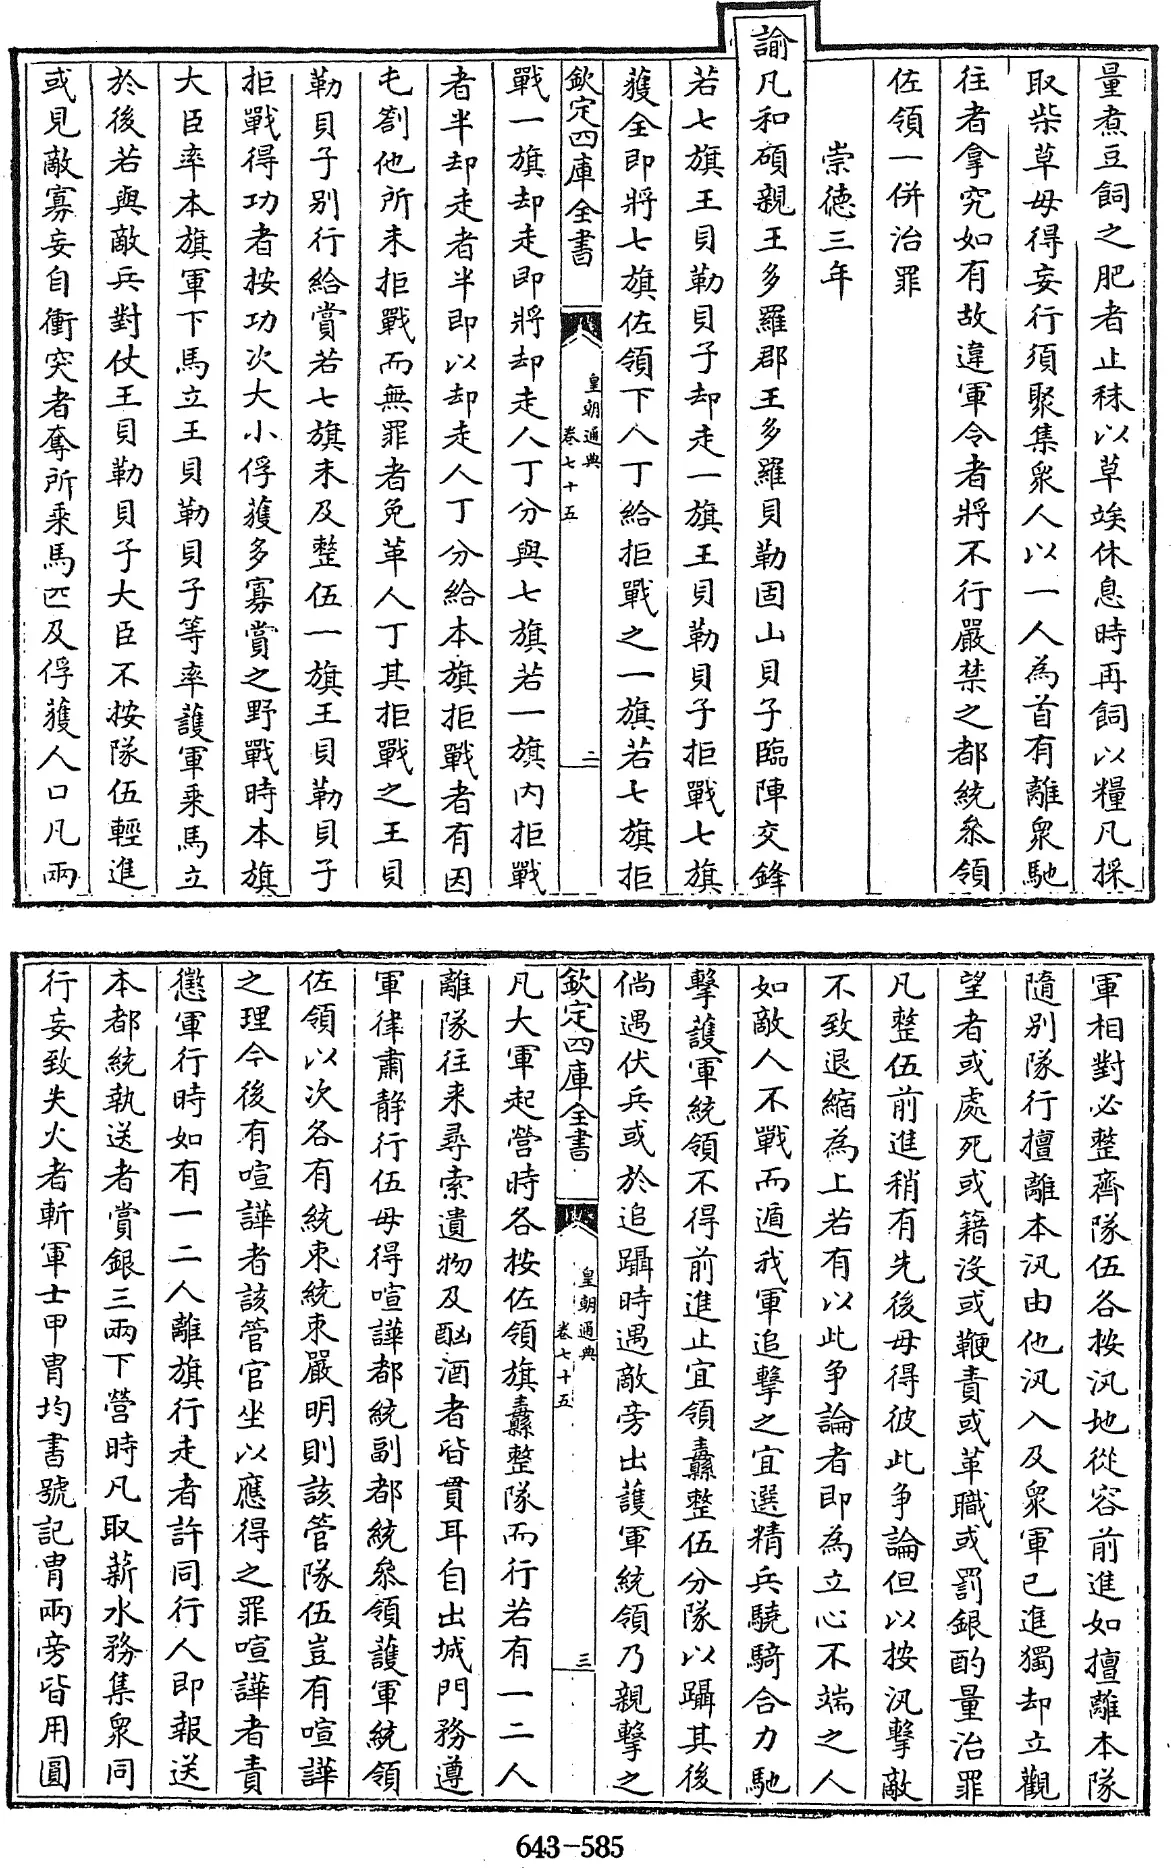 量煮豆飼之肥者止秣以草竢休息時再飼以糧凡採
取柴草毋得妄行須聚集衆人以一人為首有離衆馳
往者拿究如有故違軍令者將不行嚴禁之都統叅領
佐領一併治罪
崇徳三年
諭凡和碩親王多羅郡王多羅貝勒固山貝子臨陣交鋒
若七旗王貝勒貝子却走一旗王貝勒貝子拒戰七旗
獲全即將七旗佐領下人丁給拒戰之一旗若七旗拒
欽定四庫全書
皇朝通典
卷七十五
二
戰一旗却走即將却走人丁分與七旗若一旗内拒戰
者半却走者半即以却走人丁分給本旗拒戰者有因
屯劄他所未拒戰而無罪者免革人丁其拒戰之王貝
勒貝子别行給賞若七旗未及整伍一旗王貝勒貝子
拒戰得功者按功次大小俘獲多寡賞之野戰時本旗
大臣率本旗軍下馬立王貝勒貝子等率護軍乘馬立
於後若與敵兵對仗王貝勒貝子大臣不按隊伍輕進
或見敵寡妄自衝突者奪所乘馬匹及俘獲人口凡兩
軍相對必整齊隊伍各按汛地從容前進如擅離本隊
隨别隊行擅離本汛由他汛入及衆軍已進獨却立觀
望者或處死或籍没或鞭責或革職或罰銀酌量治罪
凡整伍前進稍有先後毋得彼此争論但以按汛擊敵
不致退縮為上若有以此争論者即為立心不端之人
如敵人不戰而遁我軍追擊之宜選精兵驍騎合力馳
擊護軍統領不得前進止宜領纛整伍分隊以躡其後
倘遇伏兵或於追躡時遇敵旁出護軍統領乃親擊之
欽定四庫全書
皇朝通典
卷七十五
三
凡大軍起營時各按佐領旗纛整隊而行若有一二人
離隊往来尋索遺物及酗酒者皆貫耳自出城門務遵
軍律肅静行伍毋得喧譁都統副都統叅領護軍統領
佐領以次各有統束統束嚴明則該管隊伍豈有喧譁
之理今後有喧譁者該管官坐以應得之罪喧譁者責
懲軍行時如有一二人離旗行走者許同行人即報送
本都統執送者賞銀三兩下營時凡取薪水務集衆同
行妄致失火者斬軍士甲冑均書號記冑兩旁皆用圓
643-585